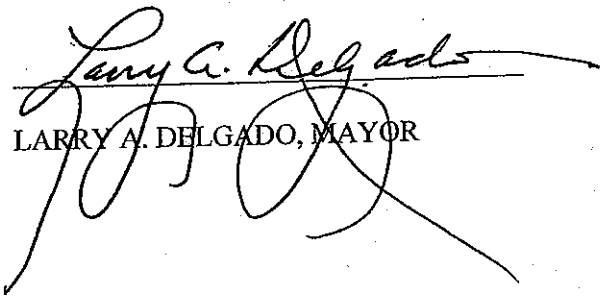 Larry A. Delgado
LARRY A. DELGADO, MAYOR